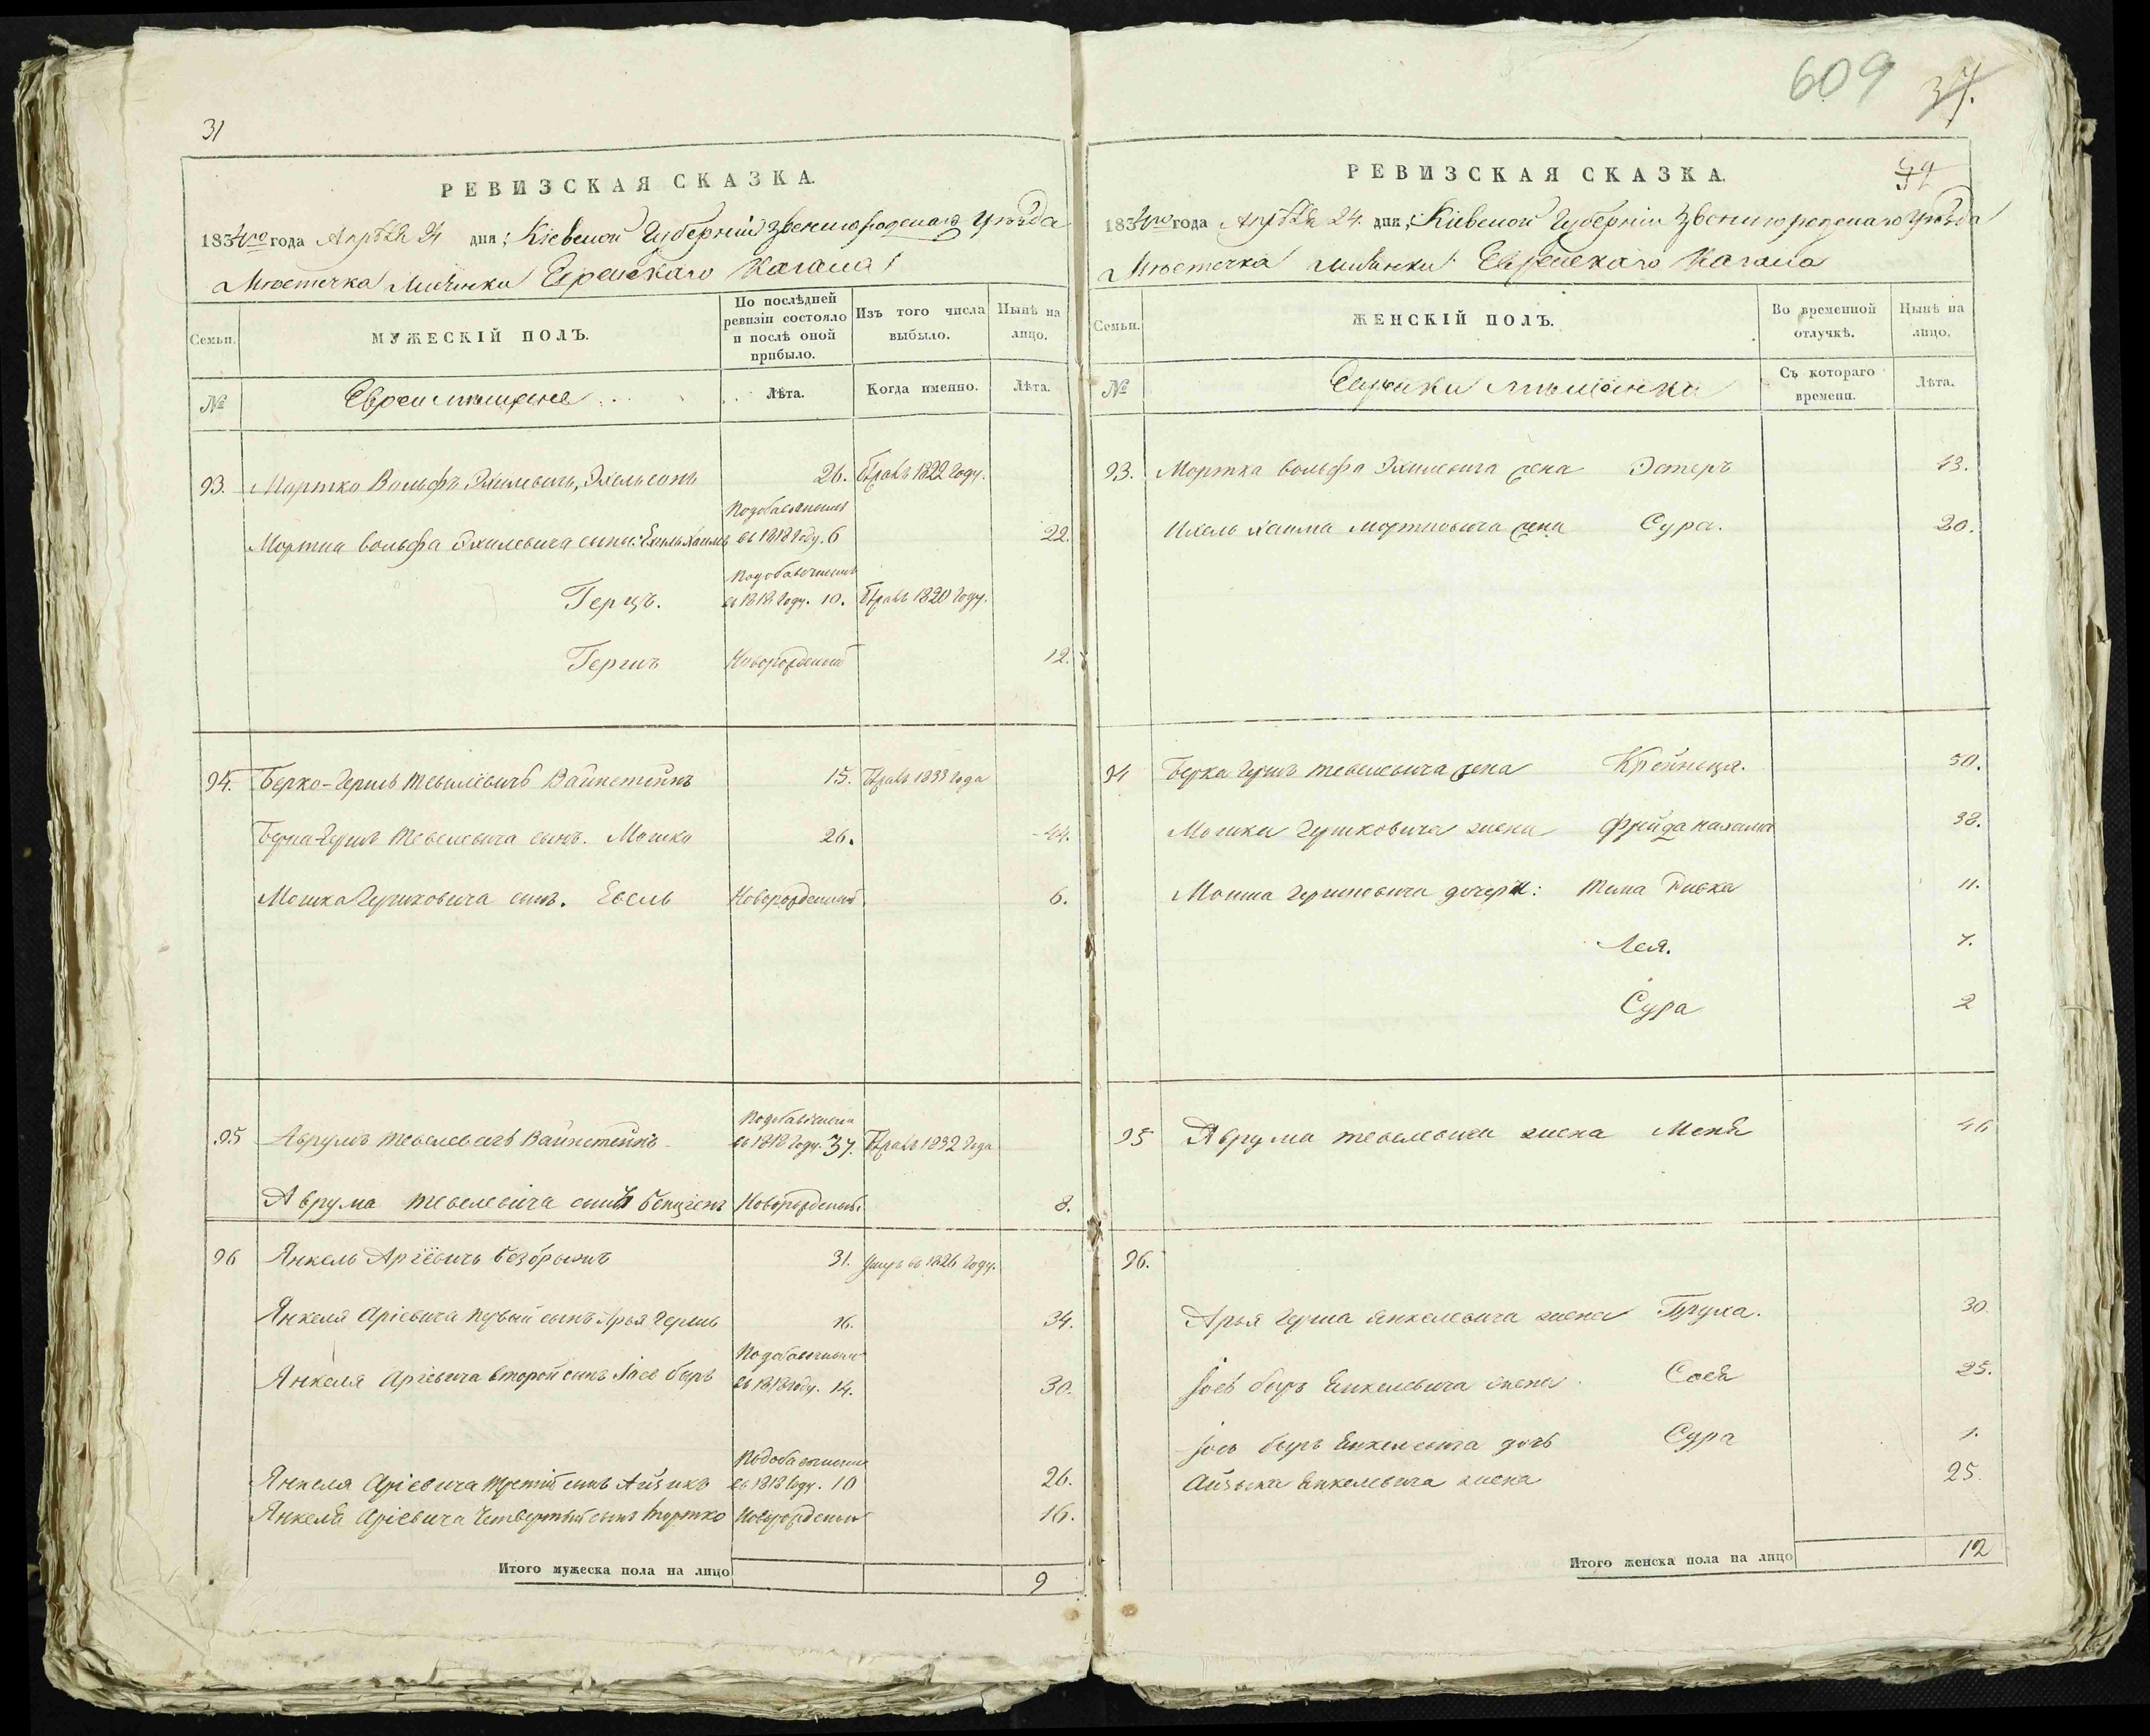 31
РЕВИЗСКАЯ СКАЗКА.
1834го года Апрѣля 24 дня; Кіевской Губерніи Звенигородскаго Уѣзда
Мѣстечка Еврейскаго Кагала
Семьи.
МУЖЕСКІЙ ПОЛЪ.
По послѣдней ревизіи состояло и послѣ оной прибыло.
Изъ того числа выбыло.
Нынѣ на лицо.
№
Евреи мѣщане
Лѣта.
Когда именно.
Лѣта.
93. Мортко Вольфъ Эхилевичь, 26. 1822 году.
Мортка Вольфа Эхилевича сынъ: въ 1818 году. 6 22.
Герцъ. въ 1818 году. 10. 1820 году.
Гершъ Новорожденный 12.
94. Берко-Гершъ Тевелевичъ Вайнстейнъ 15. 1833 года
Берка-Гершъ Тевелевича сынъ. Мошко 26. 44.
Мошка Гершковича сынъ. Евсль Новорожденный 6.
95 Аврумъ Тевелевичъ Вайнстейнъ въ 1818 году. 37. 1832 года
Аврума Тевелевича сынъ Новорожденный 8.
96 Янкель Аріевичъ 31. умеръ въ 1826 году.
Янкеля Аріевича первый сынъ Арья Гершъ 16. 34.
Янкеля Аріевича второй сынъ Іось Беръ въ 1818 году. 14. 30.
Янкеля Аріевича третій сынъ Айзикъ въ 1818 году. 10 26.
Янкеля Аріевича Четвертый сынъ Мортко Новорожденный 16.
Итого мужеска пола на лицо 9
609
37.
РЕВИЗСКАЯ СКАЗКА.
1834го года Апрѣля 24. дня; Кіевской Губерніи Звенигородскаго Уѣзда
Мѣстечка Еврейскаго Кагала
Семьи.
ЖЕНСКІЙ ПОЛЪ.
Во временной отлучкѣ.
Нынѣ на лицо.
№
Еврейки мѣщанки
Съ котораго времени.
Лѣта.
93. Мортка Вольфа Эхилевича жена Эстеръ 43.
Ихель Хаима Мортковича жена Сура. 20.
94 Берка Гершъ Тевелевича жена Крейнеця. 50.
Мошка Гершковича жена Фрейда 38.
Мошка Гершковича дочери: Ривка 11.
Лея. 7.
Сура 2
95 Аврума Тевелевича жена Меня 46
96.
Арья Герша Янкелевича жена Бруха. 30.
Іось Беръ Янкелевича жена Сося 25.
Іось Беръ Янкелевича дочь Сура 1.
Айзика Янкелевича жена 25.
Итого женска пола на лицо 12